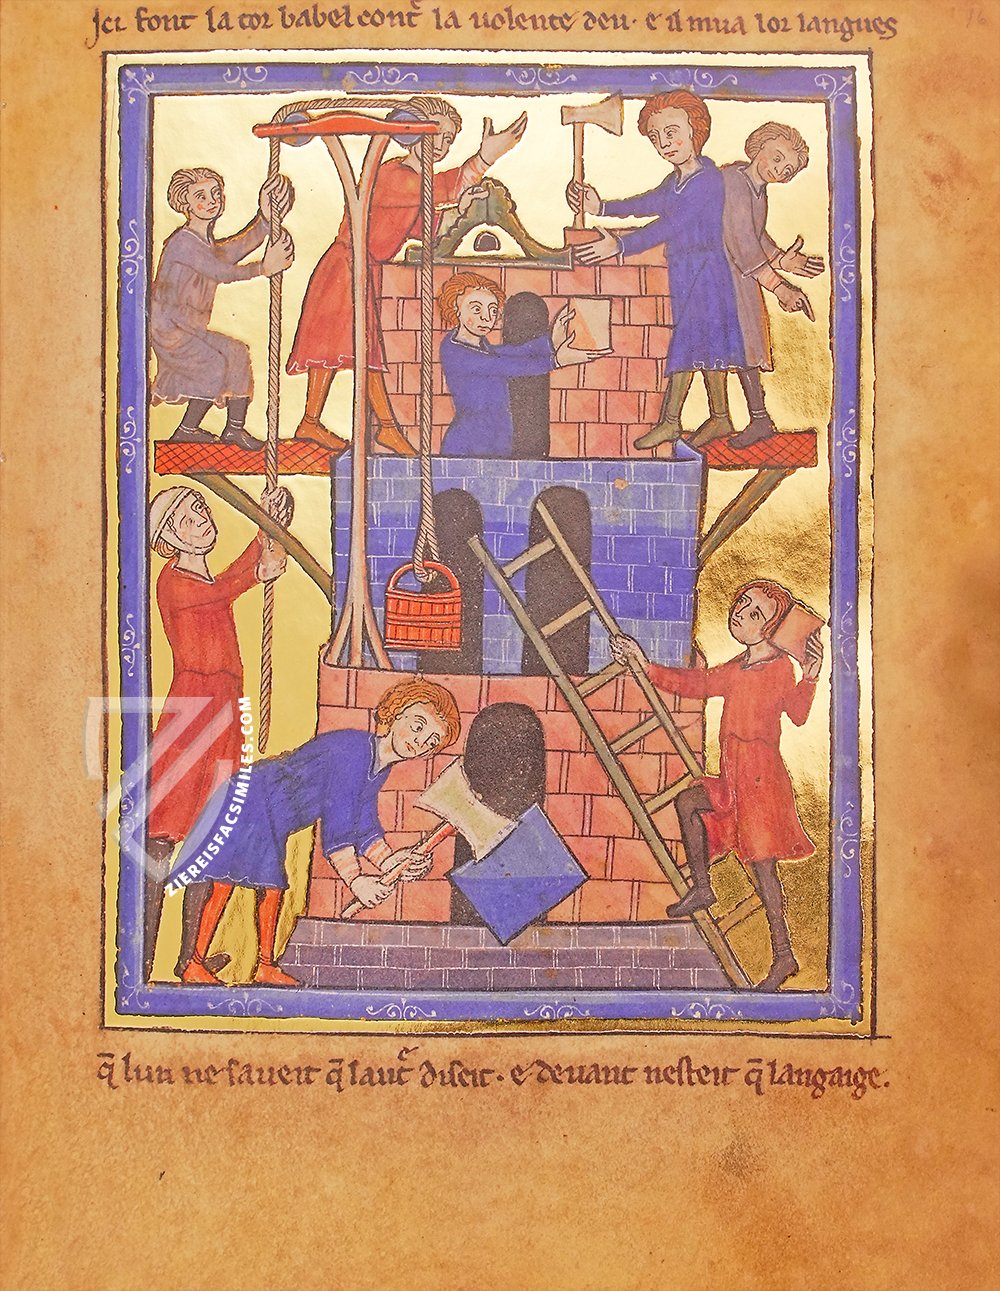 Jci font la tor babel contᷣ la uolente deu · e il mua lor langues
16
ZIEREISFACSIMILES.COM
q̄ lun ne saueit q̄ lautᷣ diseit · e deuant nesteit q̄ langaige .